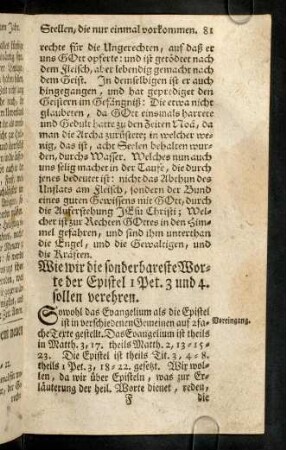 Stellen, die nur einmal vorkommen. 81
rechte für die Ungerechten, auf daß er
uns GOtt opferte: und ist getödtet nach
dem Fleisch, aber lebendig gemacht nach
dem Geist. In demselbigen ist er auch
hingegangen, und hat geprediget den
Geistern im Gefängniß: Die etwa nicht
glaubeten, da GOtt einsmals harrete
und Gedult hatte zu den Zeiten Noä, da
man die Archa zurüstete; in welcher we-
nig, das ist, acht Seelen behalten wur-
den, durchs Wasser. Welches nun auch
uns selig machet in der Taufe, die durch
jenes bedeutet ist: nicht das Abthun des
Unflats am Fleisch, sondern der Bund
eines guten Gewissens mit GOtt, durch
die Auferstehung JEsu Christi; Wel-
cher ist zur Rechten GOttes in den Him-
mel gefahren, und sind ihm unterthan
die Engel, und die Gewaltigen, und
die Kräften.
Wie wir die sonderbareste Wor-
te der Epistel 1 Pet. 3 und 4.
sollen verehren.
Sowohl das Evangelium als die Epistel
ist in verschiedenen Gemeinen auf 2fa-
che Texte gestellt. Das Evangelium ist theils
in Matth. 3, 17. theils Matth. 2, 13-15-
23. Die Epistel ist theils Tit. 3, 4-8.
theils 1 Pet. 3, 18-22. gesetzt. Wir wol-
len, da wir über Episteln, was zur Er-
läuterung der heil. Worte dienet, reden,
F die
Voreingang.